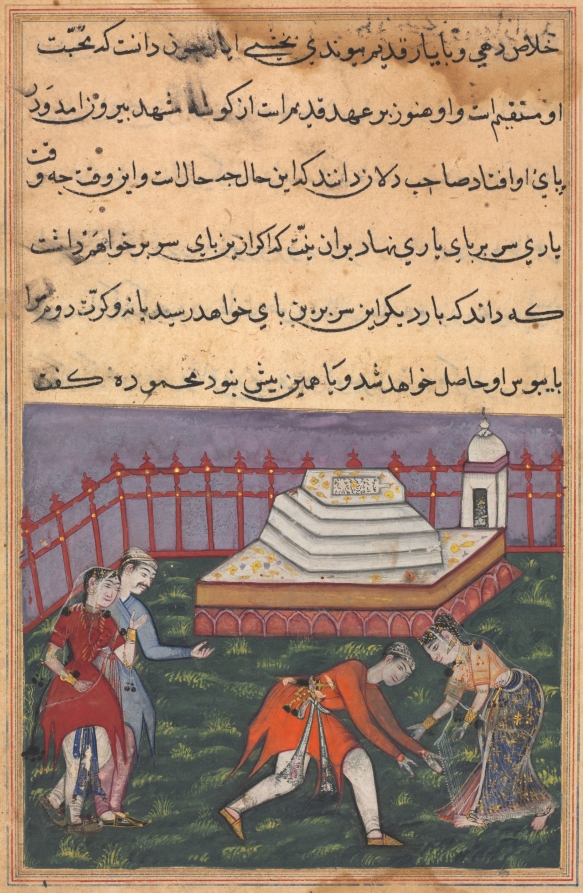 خلاص دهی و با یار قدیم پیوندی بخشی ایاز چون دانست که محبّت
او مستقیم است و او هنوز بر عهد قدیم است از کوشه مشهد بیرون امد و در
پای او افتاد صاحب دلان دانند که این حال چه حال است و این وقت چه وقت
یاری سر بر پای یاری نهاد بر ان نیّت که اکر ازین پای سر بر خواهم داشت
که داند که بار دیکر این سر برین پای خواهد رسید یا نه و کرّت دوم مرا
پایبوس او حاصل خواهد شد و یا همین بیش نبود محموده کفت